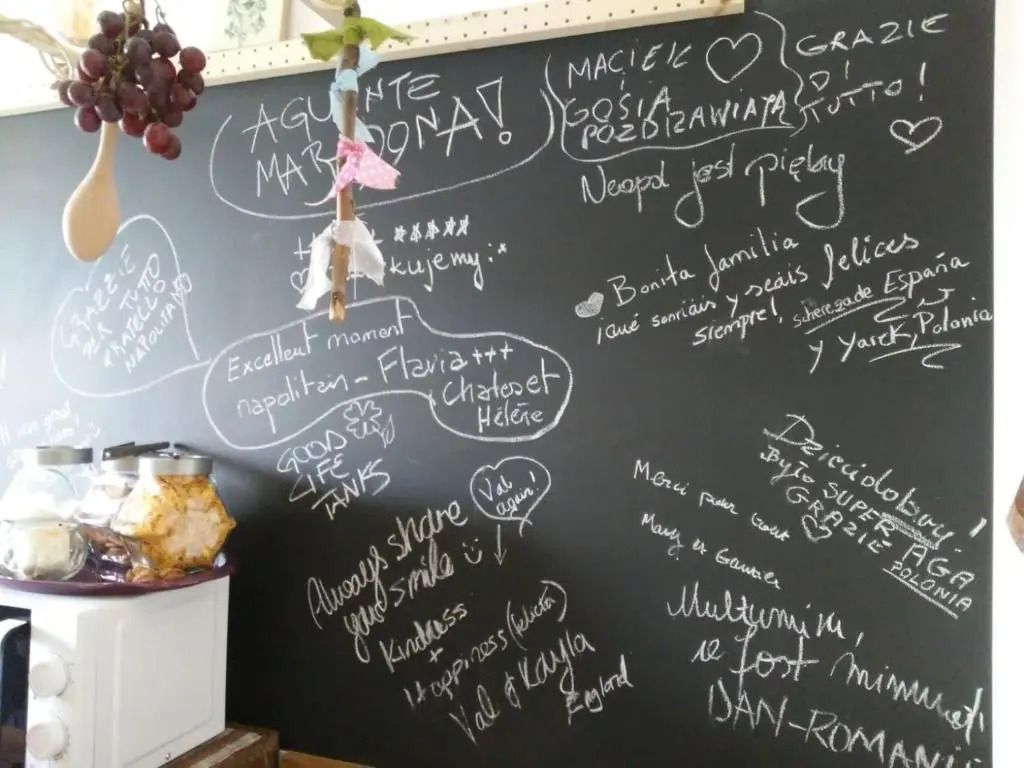 AGUANTE
MARADONA!
MACIEK
I
GOSIA
POZDRAWIAJĄ
Neapol jest piękny
GRAZIE
DI
TUTTO!
kujemy:*
GRAZZIE
PER TUTTO
FRATELLO
NAPOLITA
Bonita familia
¡Qué sonriáis y seáis felices
siempre!
Scherezade España
y Yarek, Polonia
Excellent moment
napolitain - Flavia +++
Charles et
Hélène
GOOD
LIFE
TANKS
Val
again!
Always share
your smile
Kindness
+
Happiness (felicità)
Val & Kayla
England
Dziecidobry!
Było SUPER
GRAZIE AGA
POLONIA
Merci pour tout
Mary et Gautier
Multumim,
a fost minunat!
DAN-ROMANIA